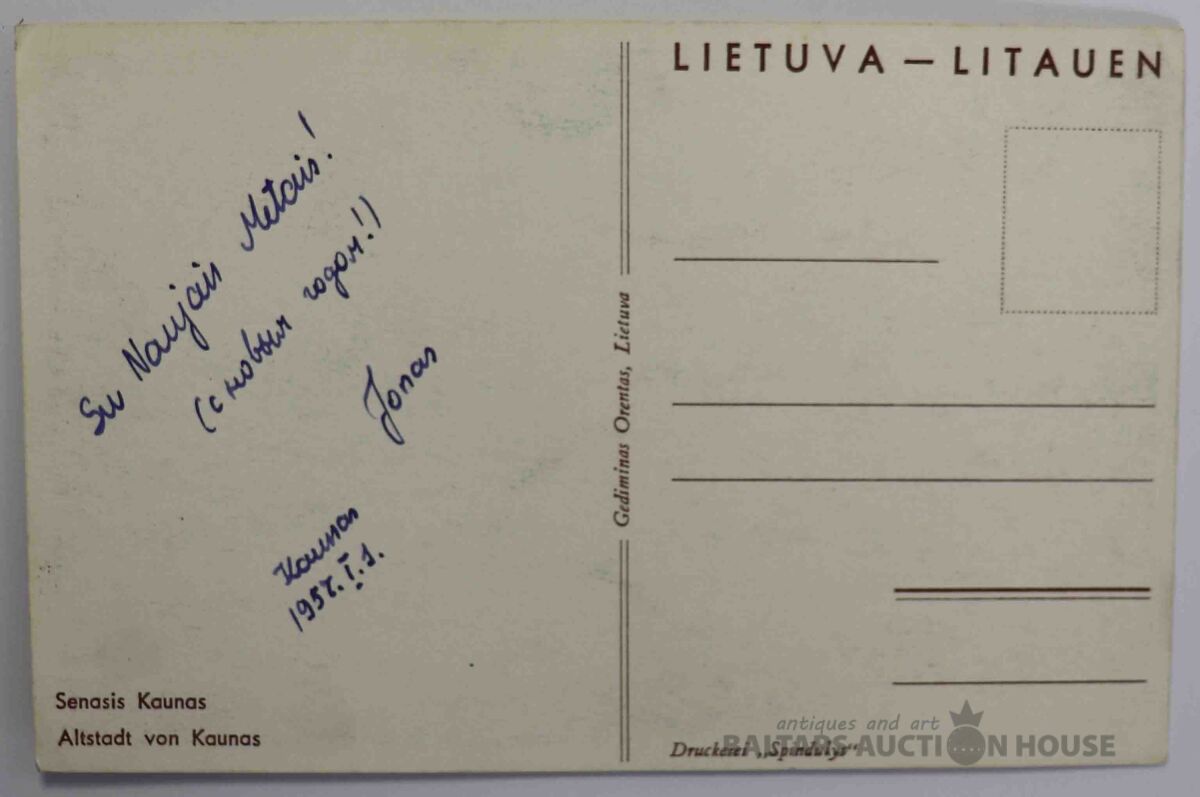 Su Naujais Metais!
(с новым годом!)
Jonas
Kaunas
1957.I.1.
Senasis Kaunas
Altstadt von Kaunas
Gediminas Orentas, Lietuva
LIETUVA — LITAUEN
Druckerei „Spindulys“
antiques and art
BALTARS AUCTION HOUSE